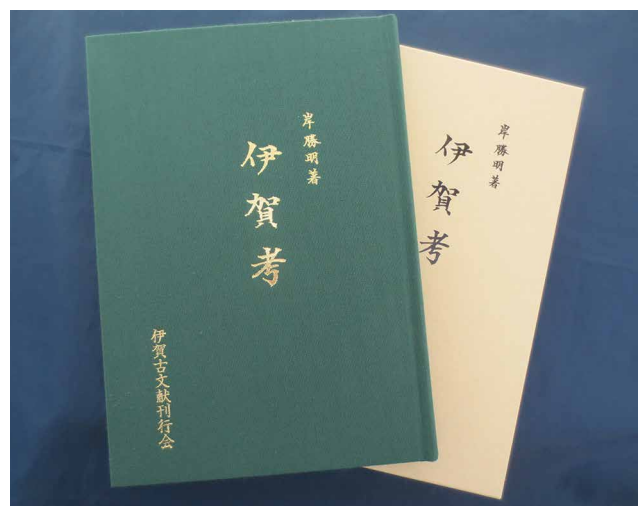 岸勝明著
伊賀考
伊賀古文献刊行会
岸勝明著
伊賀考